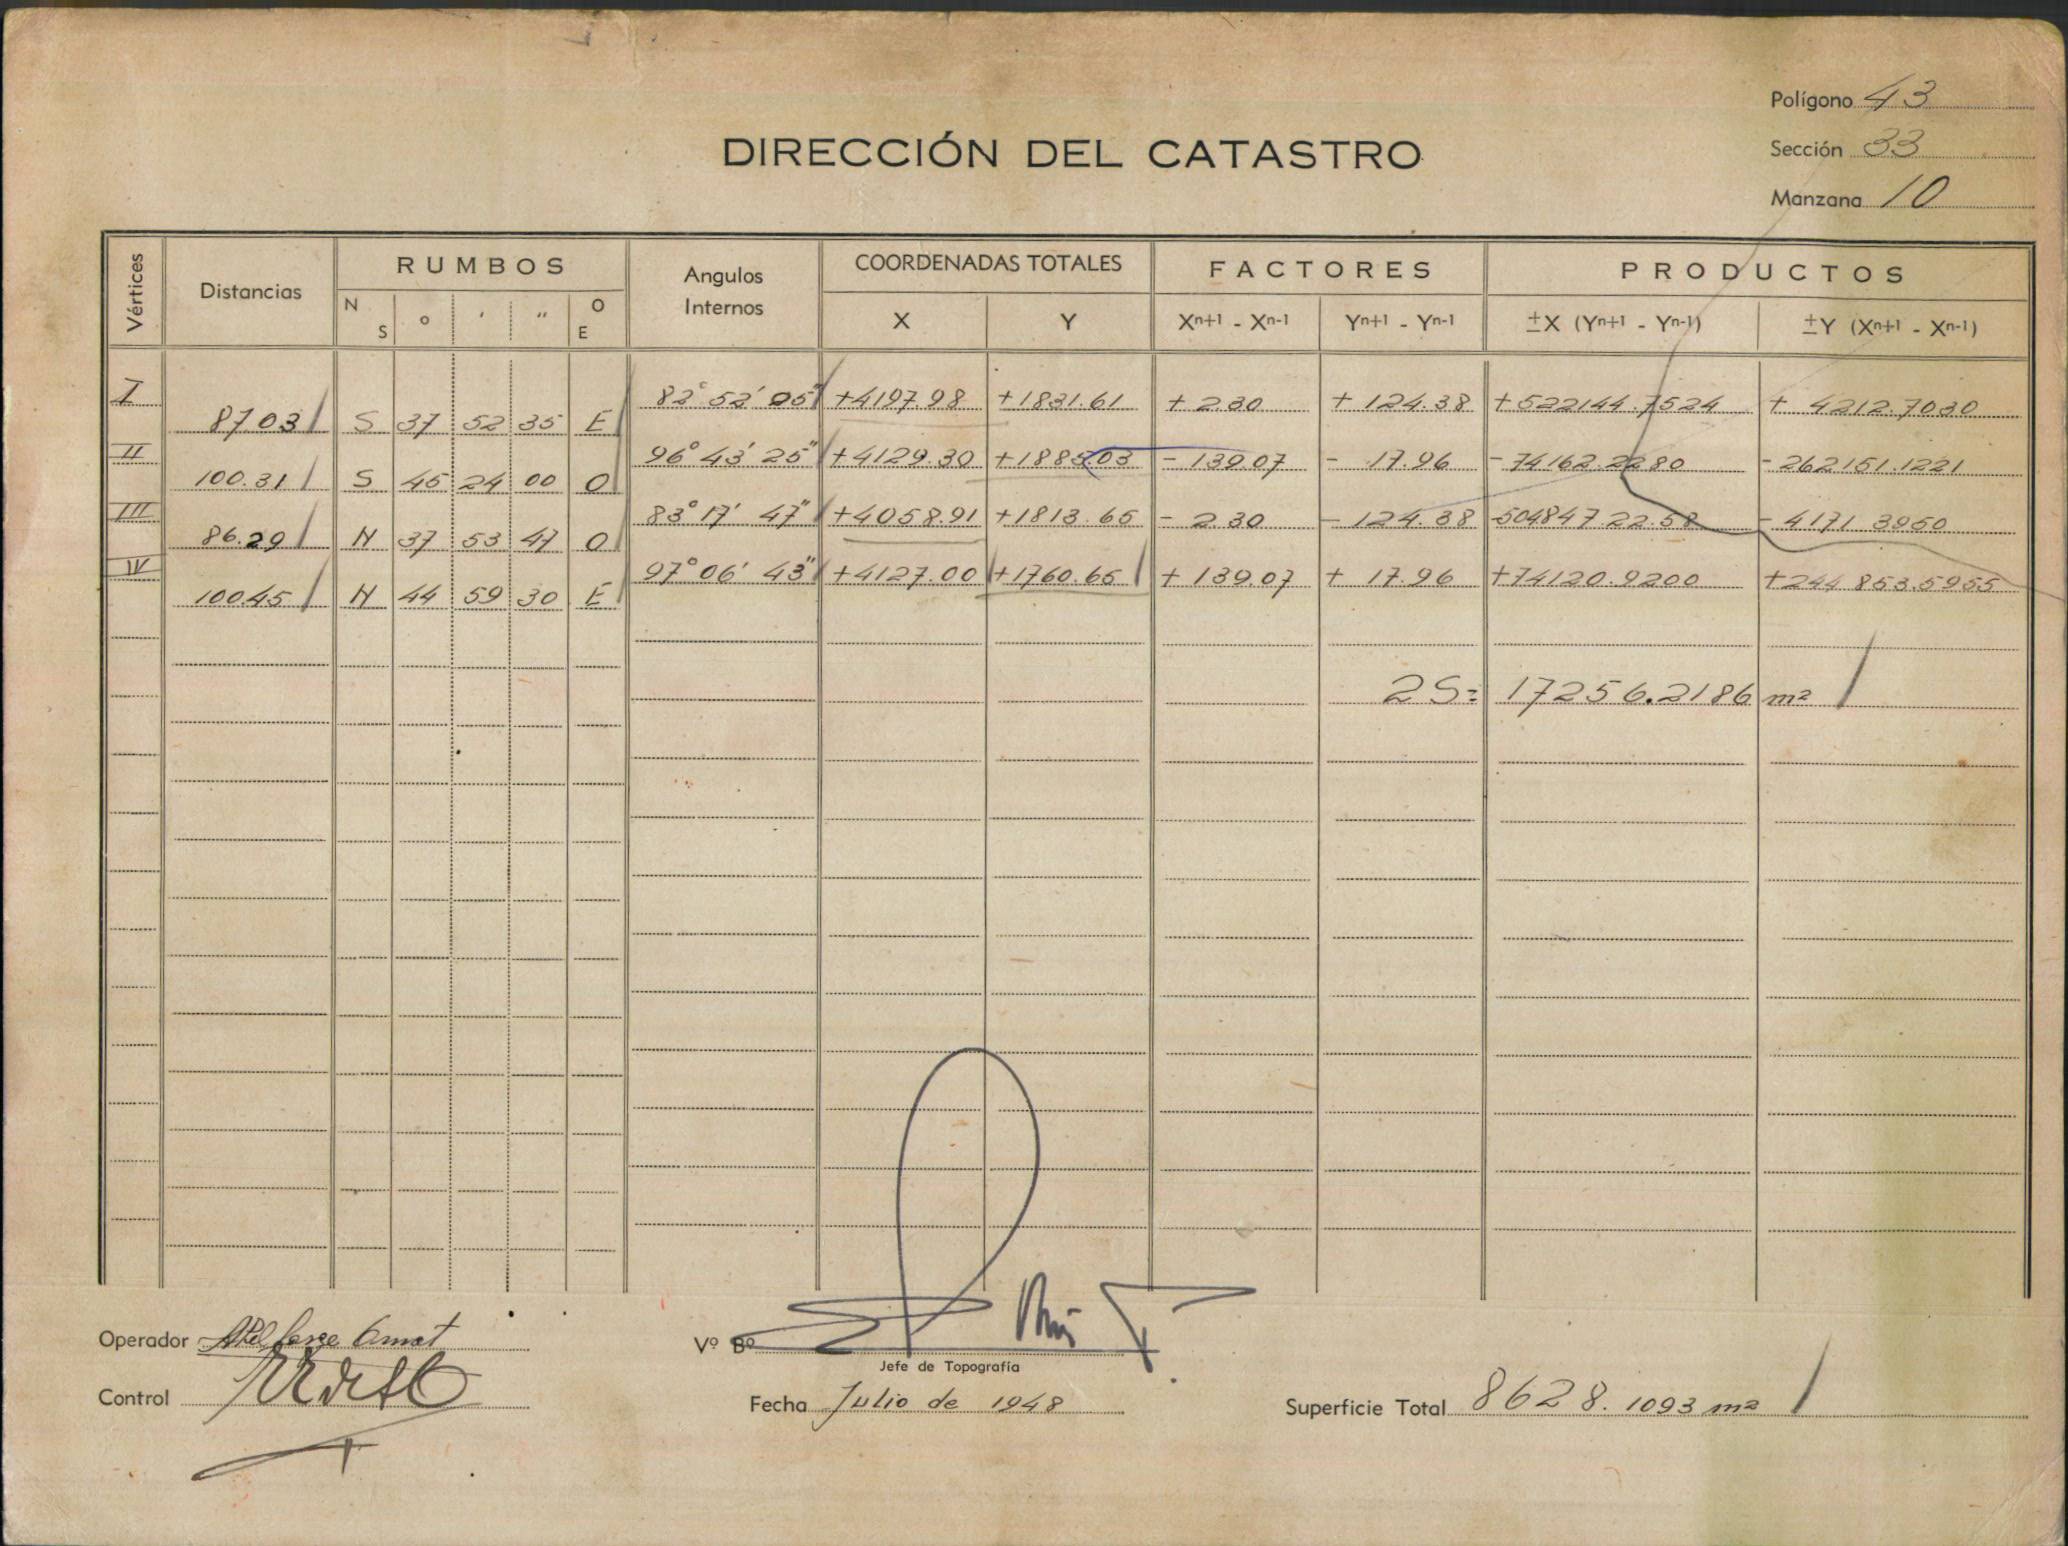 Polígono 43
DIRECCIÓN DEL CATASTRO
Sección 33
Manzana 10
Vértices Distancias RUMBOS Angulos Internos COORDENADAS TOTALES FACTORES PRODUCTOS
N S ° ' " O E X Y Xn+1 - Xn-1 Yn+1 - Yn-1 ±X (Yn+1 - Yn-1) ±Y (Xn+1 - Xn-1)
I 82° 52' 05" +4197.98 +1831.61 + 2.30 + 124.38 +522144.7524 + 4212.7030
87.03 S 37 52 35 E
II 96° 43' 25" +4129.30 +1885.03 - 139.07 - 17.96 -74162.2280 -262151.1221
100.31 S 45 24 00 O
III 83° 17' 47" +4058.91 +1813.65 - 2.30 - 124.38 -504847 22.58 - 4171 3950
86.29 N 37 53 47 O
IV 97° 06' 43" +4127.00 +1760.65 + 139.07 + 17.96 +74120.9200 +244 853.5955
100.45 N 44 59 30 E
2S= 17256.2186 m²
Operador
Vº Bº
Jefe de Topografía
Control
Fecha Julio de 1948
Superficie Total 8628.1093 m²